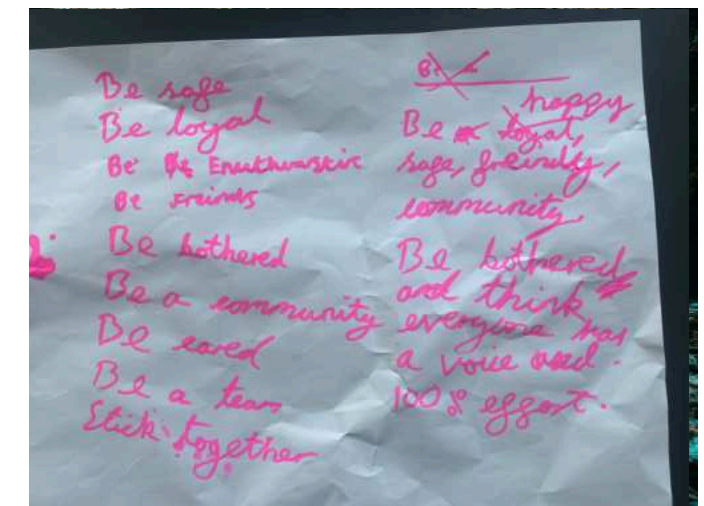 Be safe
Be loyal
Be Enuthuarskic
Be Freinds
Be bothered
Be a community
Be eared
Be a team
Stick together
Be
happy
Be loyal,
safe, freindy,
community,
Be bothered
and think
everyone has
a voice and
100% effort.